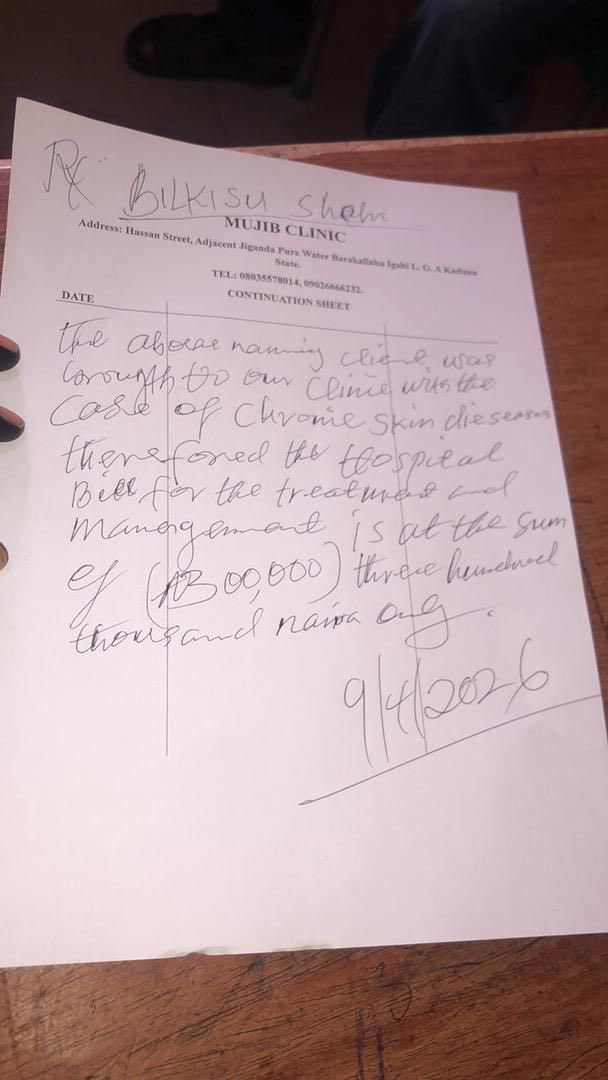 Rx BILKISU Shehu
MUJIB CLINIC
Address: Hassan Street, Adjacent Jiganda Pure Water Barakallahu Igabi L. G. A Kaduna
State.
TEL: 08035578014, 09026666232.
CONTINUATION SHEET
DATE
The above naming client was
brought to our clinic with the
Case of chronic skin dieseases
therefored the Hospital
Bill for the treatment and
management is at the sum
of (₦300,000) three hundred
thousand naira only.
9/4/2026